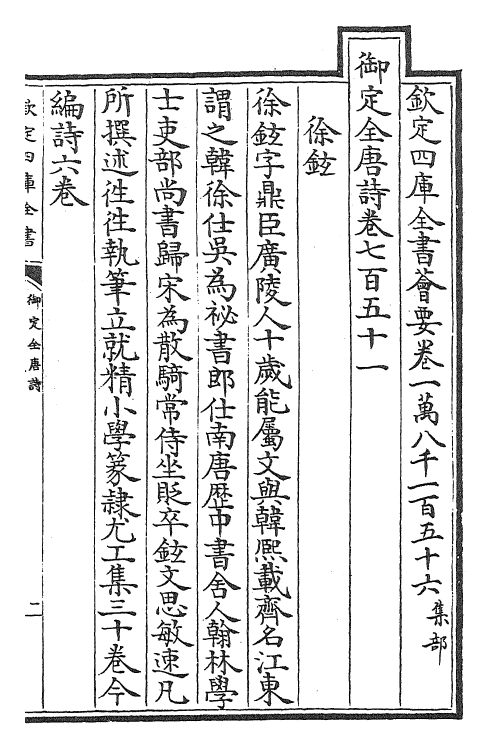 欽定四庫全書薈要卷一萬八千一百五十六集部
御定全唐詩卷七百五十一
徐鉉
徐鉉字鼎臣廣陵人十歲能屬文與韓熙載齊名江東
謂之韓徐仕吳為祕書郎仕南唐歴中書舍人翰林學
士吏部尚書歸宋為散騎常侍坐貶卒鉉文思敏速凡
所撰述徃徃執筆立就精小學篆隷尤工集三十卷今
編詩六卷
欽定四庫全書
御定全唐詩
二